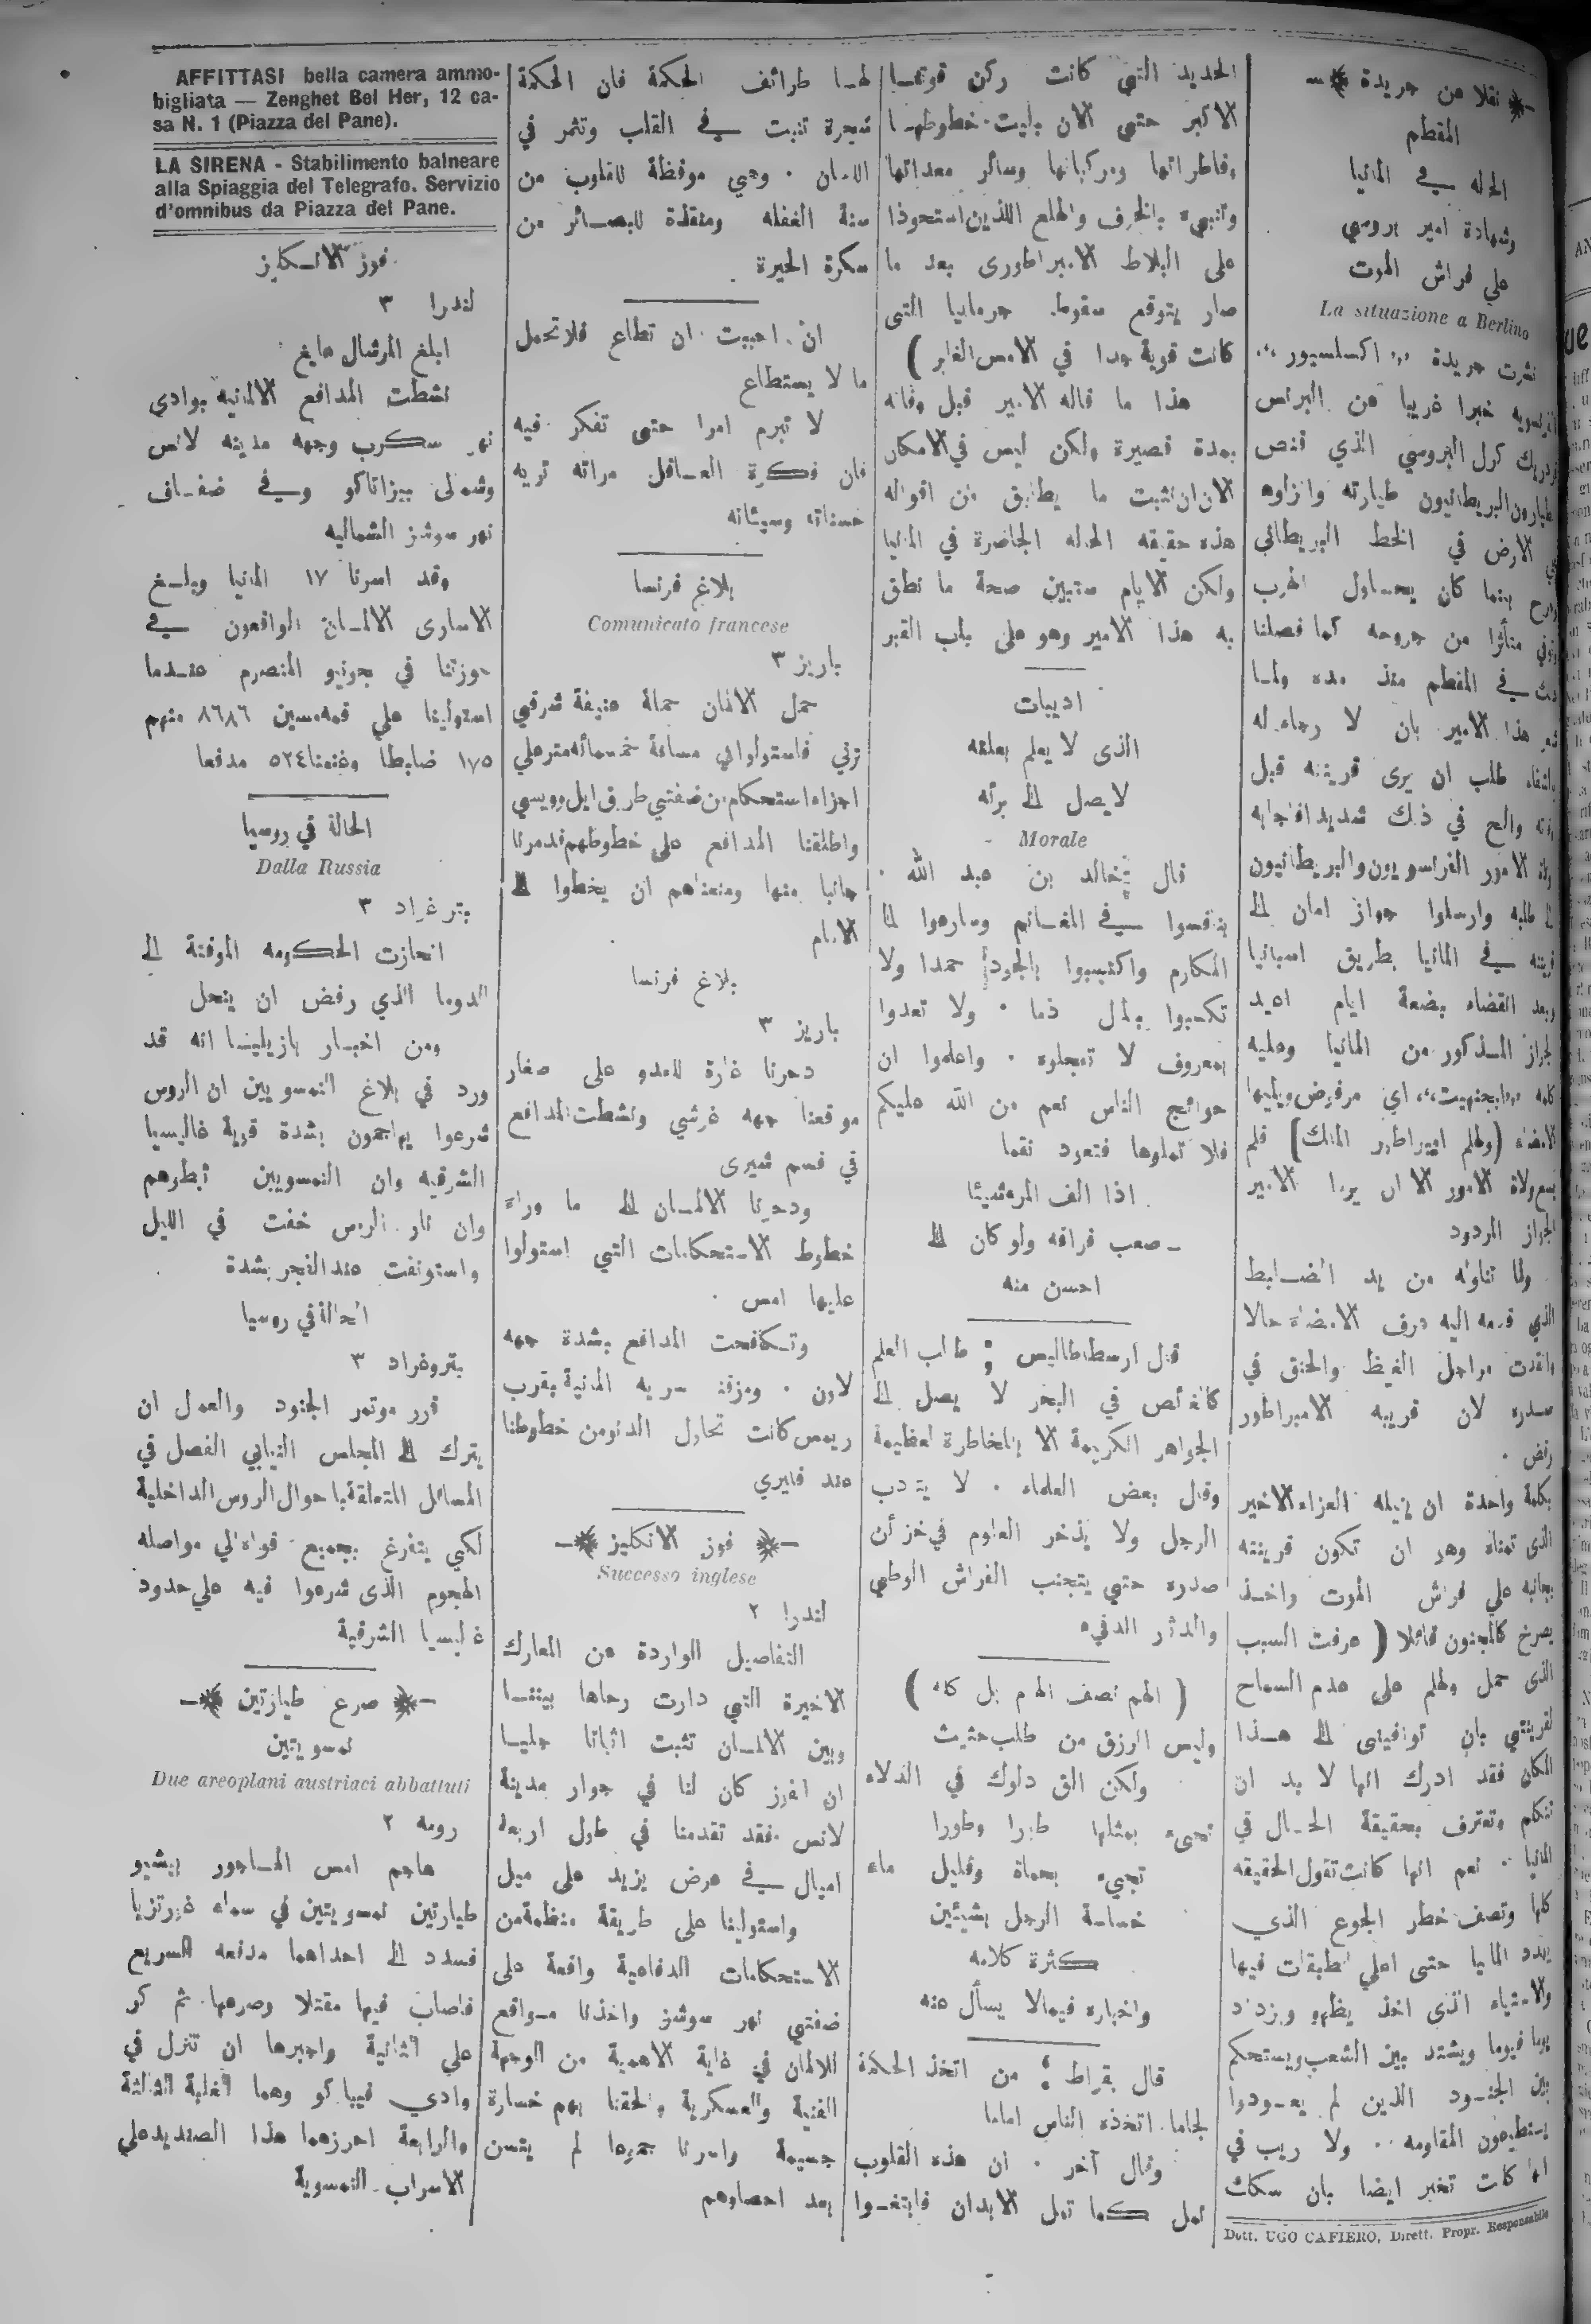 نقلا عن جريدة
المقطم
الحاله في المانيا
وشهادة امير بروسي
علي فراش الموت
La situazione a Berlino
نشرت جريدة ,,, اكسلسيور ،،،
خبرا غريبا عن البرنس
كرل البروسي الذي قنص
البريطانيون طيارته وانزلوه
الارض في الخط البريطاني
بينما كان يحساول الهرب
متأثرا من جروحه كما فصلنا
في المقطم منذ مده ولما
هذا الامير بان لا رجاء له
طلب ان يرى قرينته قبل
والح في ذلك شديدا فاجابه
الامور الفرنسويون والبريطانيون
طلبه وارسلوا جواز امان الى
في المانيا بطريق اسبانيا
وبعد انقضاء بضعة ايام اعيد
المذكور من المانيا وعليه
كلمة اي مرفوض ويليها
(ولهلم امبراطور الملك) فلم
ولاة الامور الا ان يردا الامير
الجواز المردود
ولما تناوله من يد الضابط
الذي قدمه اليه عرف الامضاء حالا
واتقدت مراجل الغيظ والحنق في
صدره لان قريبه الامبراطور
رفض .
بكلمة واحدة ان ينيله العزاء الاخير
الذى تمناه وهو ان تكون قرينته
بجانبه علي فراش الموت واخذ
يصرخ كالمجنون قائلا ( عرفت السبب
الذى حمل ولهلم على عدم السماح
لقرينتي بان توافيني الى هذا
المكان فقد ادرك انها لا بد ان
تتكلم وتعترف بحقيقة الحال في
المانيا . نعم انها كانت تقول الحقيقه
كلها وتصف خطر الجوع الذي
يهدد المانيا حتى اعلي الطبقات فيها
والاستياء الذى اخذ يظهر ويزداد
يوما فيوما ويشتد بين الشعب ويستحكم
بين الجنود الذين لم يعودوا
يستطيعون المقاومه . ولا ريب في
انها كانت تخبر ايضا بان سكك
Dott. UGO CAFIERO, Dirett. Propr. Responsabile
الحديد التي كانت ركن قوتها
الاكبر حتى الان بليت خطوطها
وقاطراتها ومركباتها وسائر معداتها
وتنبىء بالخوف والهلع اللذين استحوذا
على البلاط الامبراطورى بعد ما
صار يتوقع سقوط جرمانيا التى
كانت قوية جدا في الامس الغابر )
هذا ما قاله الامير قبل وفاته
بمدة قصيرة ولكن ليس في الامكان
الان ان نثبت ما يطابق من اقواله
هذه حقيقه الحاله الحاضرة في المانيا
ولكن الايام ستبين صحة ما نطق
به هذا الامير وهو على باب القبر
ادبيات
الذى لا يعلم بعلته
لا يصل الى برئه
Morale
قال خالد بن عبد الله .
نافسوا في المغانم وسارعوا الى
المكارم واكتسبوا بالجود حمدا ولا
تكسبوا بالمال ذما . ولا تعدوا
بمعروف لا تعجلوه . واعلموا ان
حوائج الناس نعم من الله عليكم
فلا تملوها فتعود نقما
اذا الف المرء شيئا
صعب فراقه ولو كان الى
احسن منه
قال ارسطاطاليس : طالب العلم
كالغائص في البحر لا يصل الى
الجواهر الكريمة الا بالمخاطرة العظيمة
وقال بعض العلماء . لا يتأدب
الرجل ولا يذخر العلوم في خزائن
صدره حتى يتجنب الفراش الوطي
والدثار الدفيء
( الهم نصف الهرم بل كله )
وليس الرزق من طلب حثيث
ولكن الق دلوك في الدلاء
تجيء بمثلها طورا وطورا
تجيء بحماة وقليل ماء
خساسة الرجل بشيئين
كثرة كلامه
واخباره فيما لا يسأل عنه
قال بقراط : من اتخذ الحكمة
لجاما اتخذه الناس اماما
وقال آخر . ان هذه القلوب
تمل كما تمل الابدان فابتغوا
لها طرائف الحكمة فان الحكمة
شجرة تنبت في القلب وتثمر في
اللسان . وهي موقظة للقلوب من
سنة الغفله ومنقذة للبصائر من
سكرة الحيرة
ان احببت ان تطاع فلا تحمل
ما لا يستطاع
لا تبرم امرا حتى تفكر فيه
فان فكرة العاقل مراته تريه
حسناته وسيئاته
بلاغ فرنسا
Comunicato francese
باريز ٣
حمل الالمان حملة عنيفة شرقي
ترني فاستولوا الى مسافة خمسمائه متر علي
اجزاء استحكام من ضفتي طريق ايل وويسي
واطلقنا المدافع على خطوطهم فدمرنا
جانبا منها ومنعناهم ان يخطوا الى
الامام
بلاغ فرنسا
باريز ٣
دحرنا غارة للعدو على صغار
موقعنا جهه غرشي ونشطت المدافع
في قسم شيرى
ودحرنا الالمان الى ما وراء
خطوط الاستحكامات التي استولوا
عليها امس .
وتكافحت المدافع بشدة جهه
لاون . ومزقنا سريه المانية بقرب
ريمس كانت تحاول الدنو من خطوطنا
عند فايري
فوز الانكليز
Successo inglese
لندرا ٢
التفاصيل الواردة عن المعارك
الاخيرة التي دارت رحاها بيننا
وبين الالمان تثبت اثباتا جليا
ان الفوز كان لنا في جوار مدينة
لانس فقد تقدمنا في طول اربعة
اميال في عرض يزيد على ميل
واستولينا على طريقة منظمة من
الاستحكامات الدفاعية واقعة على
ضفتي نهر سوشز واخذنا مواقع
للالمان في غاية الاهمية من الوجهة
الفنية والعسكرية والحقنا بهم خسارة
جسيمة واسرنا جموعا لم يتسن
بعد احصاؤهم
AFFITTASI bella camera ammo-
bigliata — Zenghet Bel Her, 12 ca-
sa N. 1 (Piazza del Pane).
LA SIRENA - Stabilimento balneare
alla Spiaggia del Telegrafo. Servizio
d'omnibus da Piazza del Pane.
فوز الانكليز
لندرا ٣
ابلغ المرشال هايغ
نشطت المدافع الالمانيه بوادى
نهر سكرب وجهة مدينه لانس
وشمالى بيزانتاكو وفي ضفاف
نهر سوشز الشماليه
وقد اسرنا ١٧ المانيا ويبلغ
الاسارى الالمان الواقعون في
حوزتنا في جونيو المنصرم عندما
استولينا علي قمه مسين ٨٦٨٦ منهم
١٧٥ ضابطا وغنمنا ٥٢٤ مدفعا
الحالة في روسيا
Dalla Russia
بترغراد ٣
انحازت الحكومه الموقتة الى
الدوما الذي رفض ان ينحل
ومن اخبار بازيلينسا انه قد
ورد في بلاغ النمسويين ان الروس
شرعوا يهاجمون بشدة قرية غاليسيا
الشرقيه وان النمسويين
وان نار الروس خفت في الليل
واستونفت عند الفجر بشدة
الحالة في روسيا
بتروغراد ٣
قرر موتمر الجنود والعمل ان
يترك الى المجلس النيابي الفصل في
المسائل المتعلقة باحوال الروس الداخلية
لكي يتفرغ بجميع قواه الي مواصله
الهجوم الذى شرعوا فيه علي حدود
غاليسيا الشرقية
صرع طيارتين
نمسويتين
Due areoplani austriaci abbattuti
رومه ٢
هاجم امس الماجور بيشيو
طيارتين نمسويتين في سماء غورتزيا
فسدد الى احداهما مدفعه السريع
فاصاب فيها مقتلا وصرعها. ثم كر
على الثانية واجبرها ان تنزل في
وادي فيباكو وهما الغلبة الثالثة
والرابعة احرزهما هذا الصنديد علي
الاسراب النمسوية